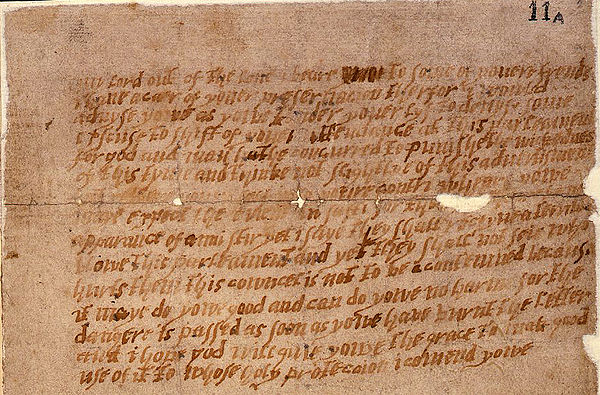 11A
lord out of the love i beare to some of youere frends
i have a caer of youer preseruacion therfor i would
aduyse yowe as yowe tender youer lyf to devyse some
excuse to shift of youer attendance at this parleament
for god and man hathe concurred to punishe the wickednes
of this tyme and thinke not slightlye of this aduertisment
contri wheare yowe
maye expect the event in safti for
apparance of anni stir yet i saye they shall receyve a terrible
blowe this parleament and yet they shall not seie who
hurts them this councel is not to be contemned because
it maye do yowe good and can do yowe no harme for the
dangere is passed as soon as yowe have burnt the letter
and i hope god will give yowe the grace to mak good
use of it to whose holy proteccion i comend yowe